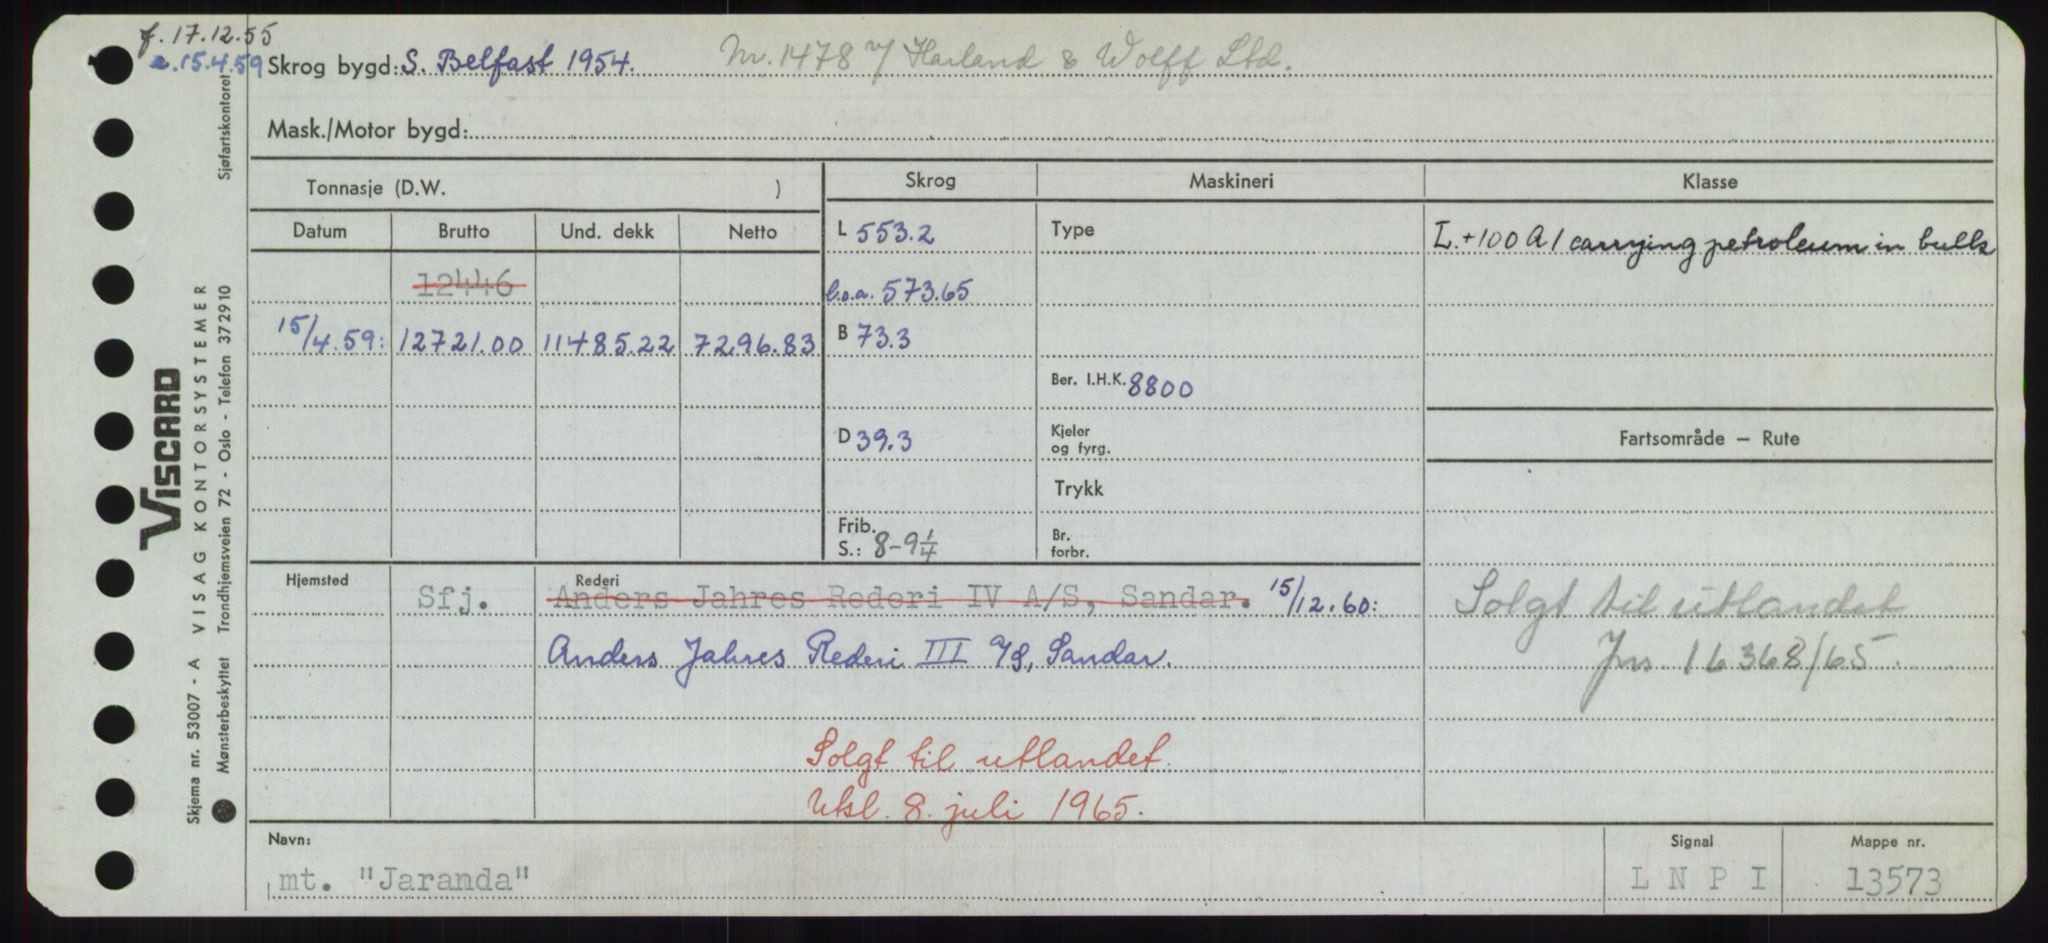 f. 17.12.55
e. 15.4.59
Skrog bygd: S. Belfast 1954. Nr. 1478 v/ Harland & Wolff Ltd.
Mask./Motor bygd:
Tonnasje (D.W. )
Skrog
Maskineri
Klasse
Datum Brutto Und. dekk Netto
L 553.2
Type
L. +100 A 1 carrying petroleum in bulk
12446
l.o.a. 573.65
15/4.59: 12721.00 11485.22 7296.83
B 73.3
Ber. I.H.K. 8800
D 39.3
Kjeler
og fyrg.
Fartsområde — Rute
Trykk
Frib.
S.: 8-9 1/4
Br.
forbr.
Hjemsted
Rederi
Sfj.
Anders Jahres Rederi IV A/S, Sandar. 15/12.60:
Anders Jahres Rederi III A/S, Sandar.
Solgt til utlandet
Jnr. 16368/65.
Solgt til utlandet.
Utsl. 8. juli 1965.
Navn:
mt. "Jaranda"
Signal
L N P I
Mappe nr.
13573
Sjøfartskontoret
VISCARD
VISAG KONTORSYSTEMER
Skjema nr. 53007 - A
Mønsterbeskyttet Trondhjemsveien 72 - Oslo - Telefon 37 29 10